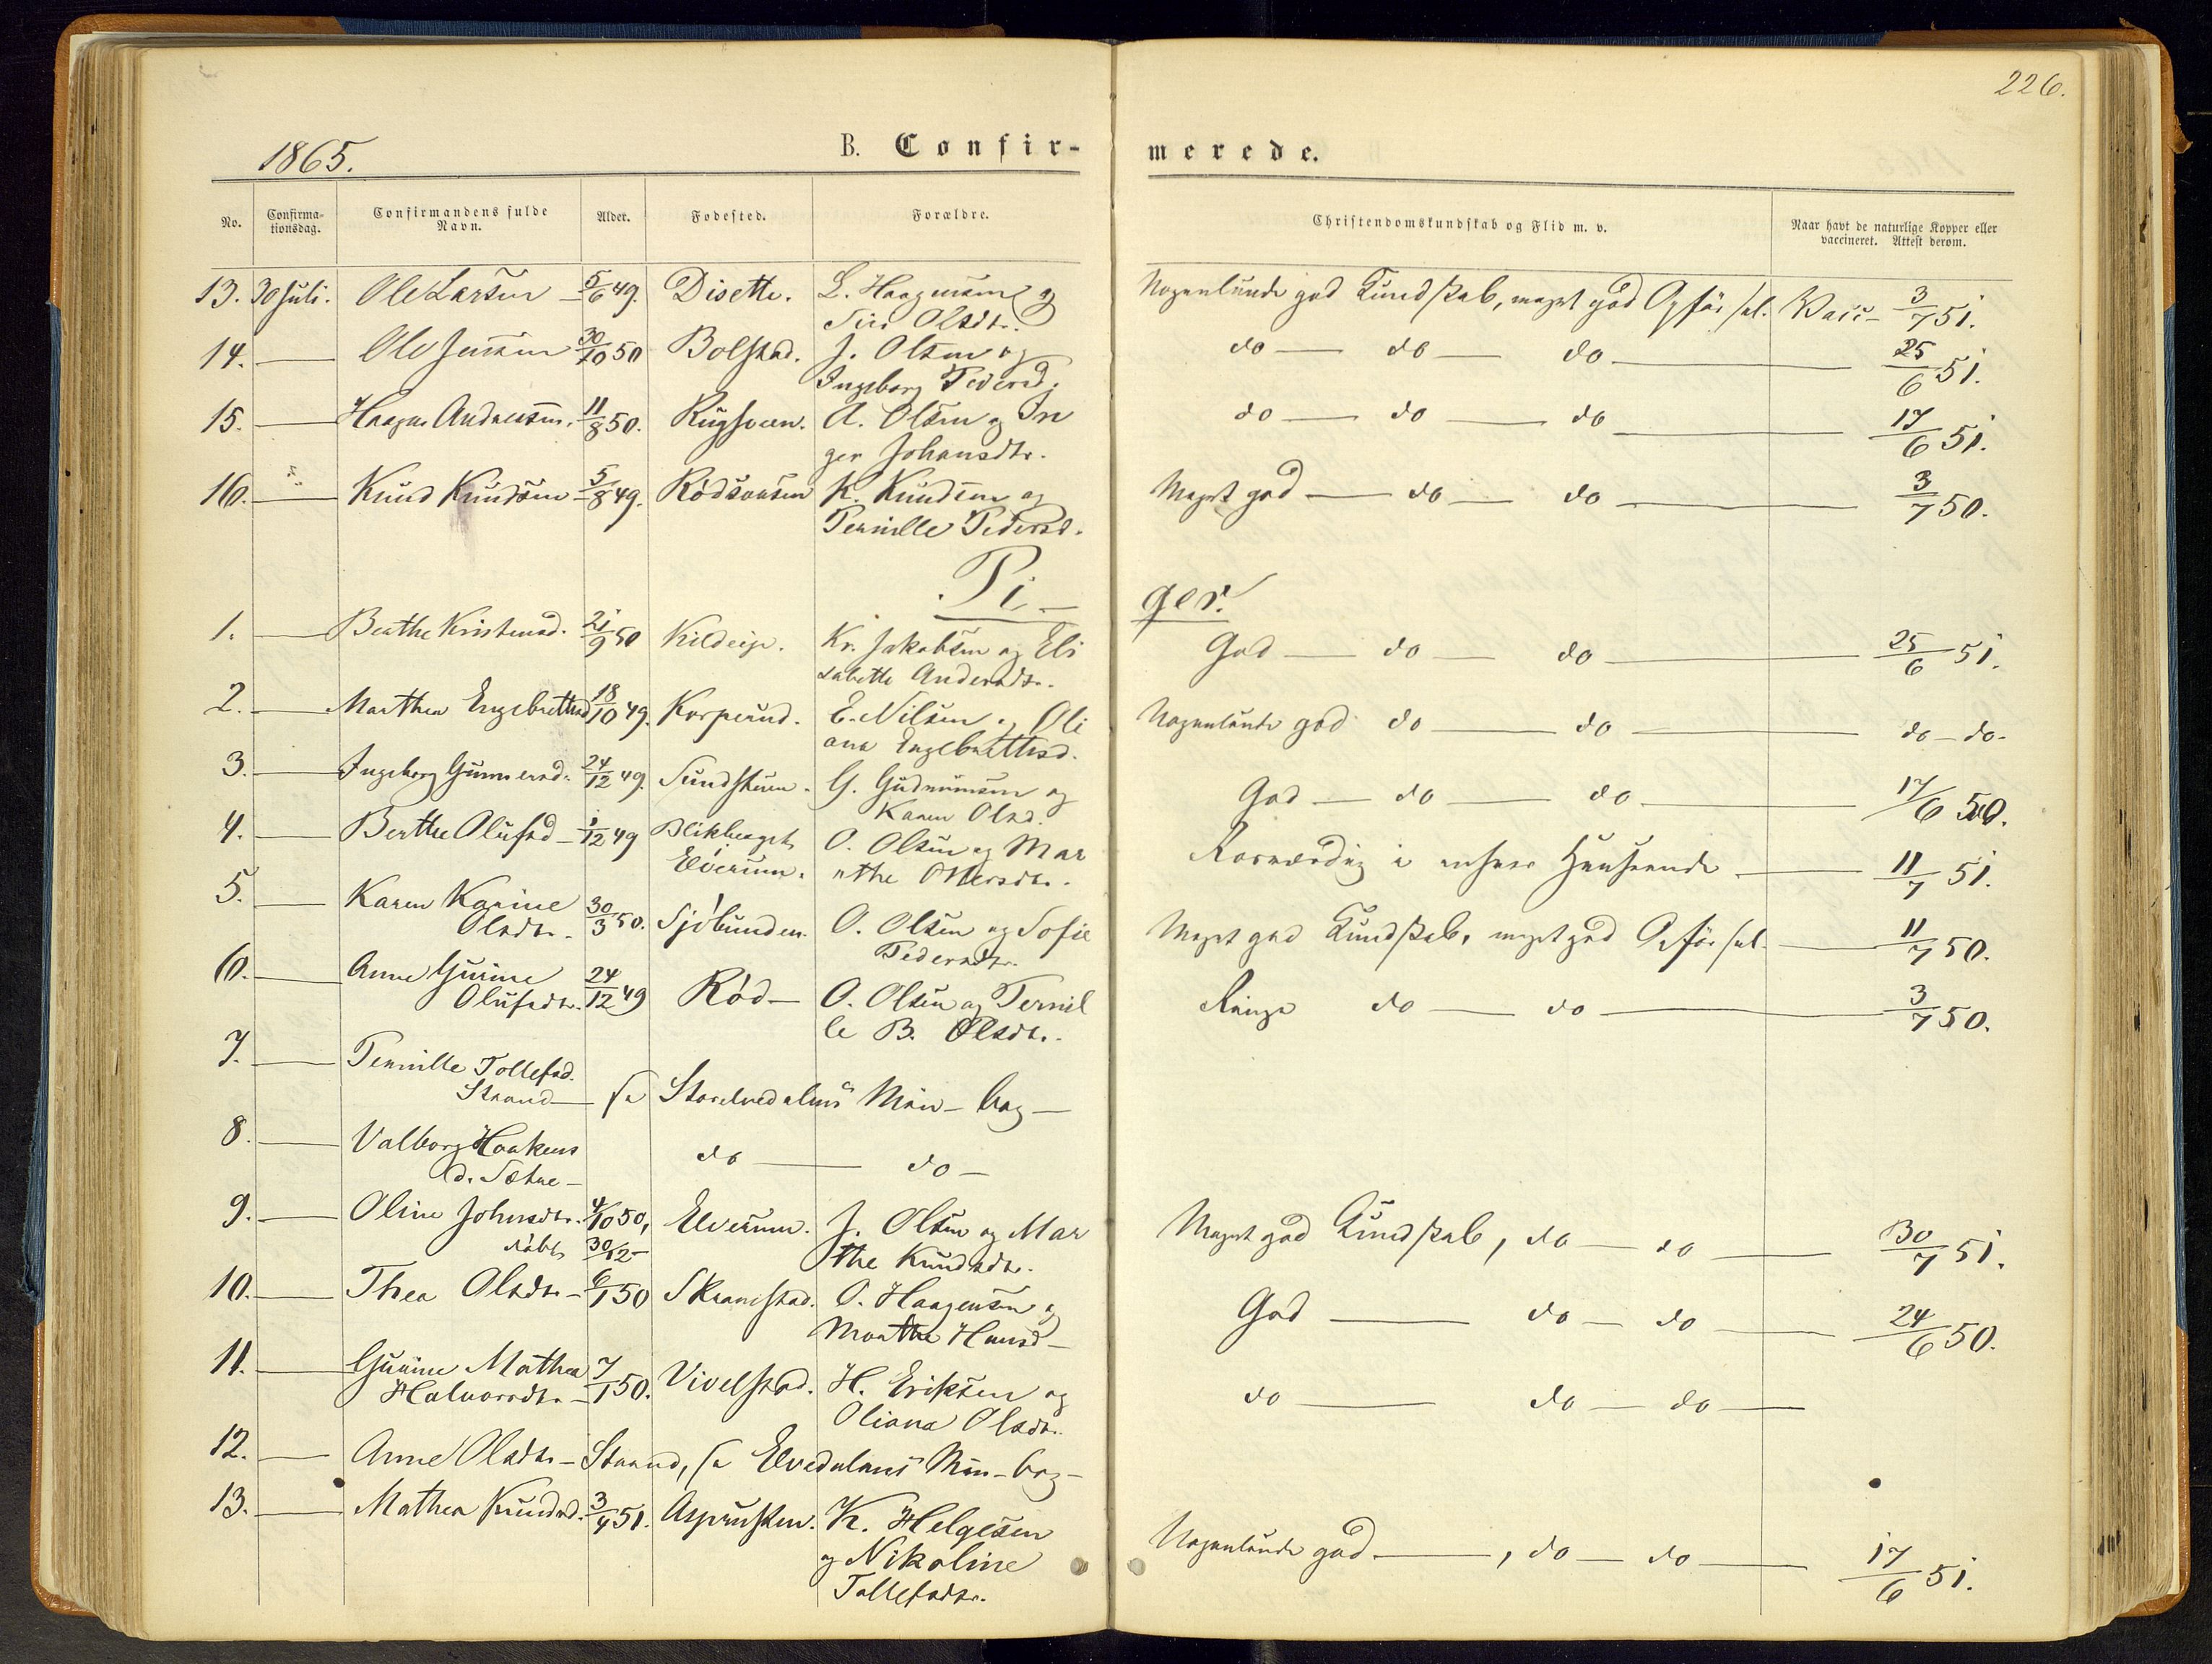 226.
1865.
B. Confir-
merede.
No.
Confirma-
tionsdag.
Confirmandens fulde
Navn.
Alder.
Fødested.
Forældre.
Christendomskundskab og Flid m. v.
Naar havt de naturlige Kopper eller
vaccineret. Attest derom.
13. 30 Juli. Ole Larsen 5/6 49. Disette. L. Haagensen og
Siri Olsdtr.
Nogenlunde god Kundskab, meget god Opførsel. Vacc- 3/7 51.
14. Ole Jensen 30/10 50 Bolstad. J. Olsen og
Ingeborg Pedersd.
do do do 25/6 51.
15. Haagen Andreassen. 11/8 50. A. Olsen og In
ger Johansdtr.
do do do 17/6 51.
16. Knud Knudsen 5/8 49. K. Knudsen og
Pernille Pedersd.
Meget god do do 3/7 50.
Pi-
ger.
1. Beathe Kristensd. 21/9 50 Kr. Jakobsen og Eli
sabette Andersdtr.
God do do 25/6 51.
2. Marthea Engebrettsd 18/10 49. E. Nilsen og Oli
ana Engebrettsd.
Nogenlunde god do do do - do-
3. Ingeborg Gunnersd. 24/12 49. G. Gudmunsen og
Karen Olsd.
God do do 17/6 50.
4. Berthe Olufsd 1/12 49 Blikberget
Elverum.
O. Olsen og Mar
the Ottersdtr.
i enhver Henseende 11/7 51.
5. Karen Karine
Olsdtr. 30/3 50. Sjøbunden. O. Olsen og Sofie
Pedersdtr.
Meget god Kundskab, meget god Opførsel. 11/7 50.
6. Anne Gurine
Olufsdtr. 24/12 49 Rød- O. Olsen og Pernil
le B. Olsdtr.
Ringe do do 3/7 50.
7. Pernille Tollefsd.
Strand se Storelvedalens Min-bog
8. Valborg Haakens
d. Sætre-
do do-
9. Oline Johnsdtr. 4/10 50, Elverum. J. Olsen og Mar
døbt 30/12- the Knudsdtr.
Meget god Kundskab, do do 30/7 51.
10. Thea Olsdtr- 6/1 50 Skramstad. O. Haagensen og
Marthe Hansd-
God do do 24/6 50.
11. Gurine Mathea
Halvorsdtr- 7/1 50. Vivelstad. H. Eriksen og
Oliana Olsdtr.
do do do
12. Anne Olsdtr- Strand, se Elvedalens Min-bog-
13. Mathea Knudsd. 3/4 51. K. Helgesen
og Nikoline
Tollefsdtr.
Nogenlunde god, do do 17/6 51.